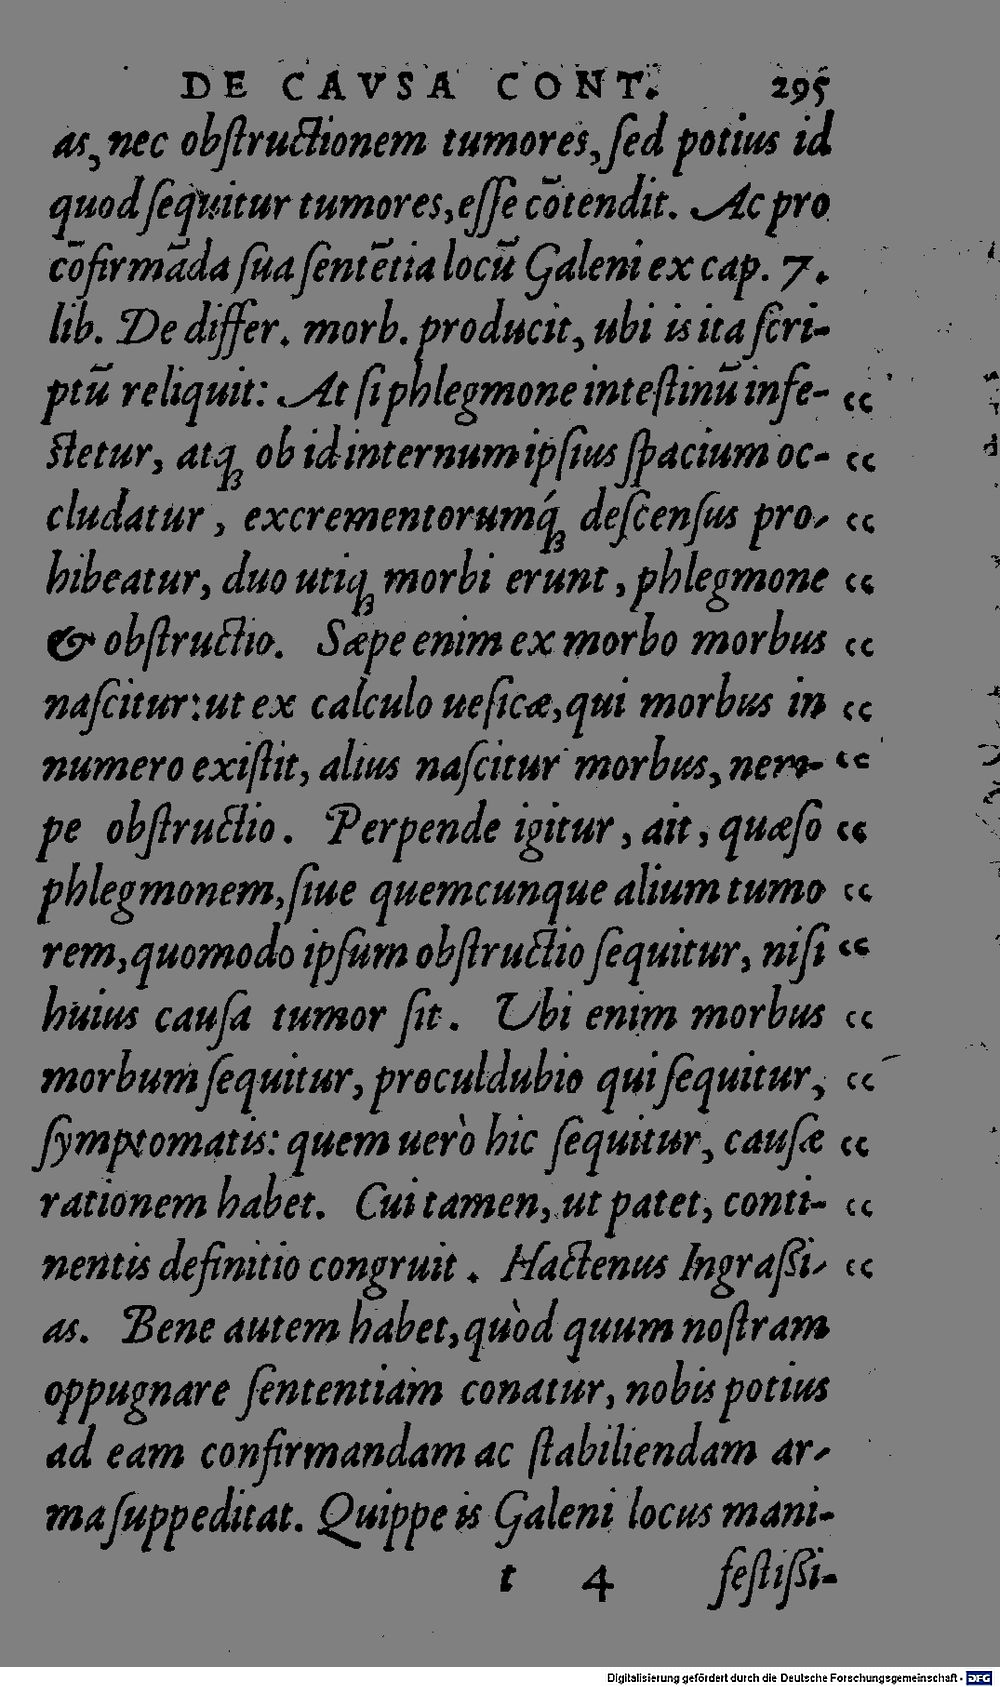 DE CAVSA CONT. 295
as, nec obſtructionem tumores, ſed potius id
quod ſequitur tumores, eſſe cōtendit. Ac pro
cōfirmāda ſua ſentētia locū Galeni ex cap. 7.
lib. De differ. morb. producit, ubi is ita ſcri-
ptū reliquit: At ſi phlegmone inteſtinū infe- “
ſtetur, atqꝫ ob id internum ipſius ſpacium oc- “
cludatur, excrementorumq́ꝫ deſcenſus pro- “
hibeatur, duo utiqꝫ morbi erunt, phlegmone “
& obſtructio. Sæpe enim ex morbo morbus “
naſcitur: ut ex calculo ueſicæ, qui morbus in “
numero exiſtit, alius naſcitur morbus, nem- “
pe obſtructio. Perpende igitur, ait, quæſo “
phlegmonem, ſiue quemcunque alium tumo “
rem, quomodo ipſum obſtructio ſequitur, niſi “
huius cauſa tumor ſit. Ubi enim morbus “
morbum ſequitur, proculdubio qui ſequitur, “
ſymptomatis: quem uerò hic ſequitur, cauſæ “
rationem habet. Cui tamen, ut patet, conti- “
nentis definitio congruit. Hactenus Ingraßi- “
as. Bene autem habet, quòd quum noſtram
oppugnare ſententiam conatur, nobis potius
ad eam confirmandam ac ſtabiliendam ar-
ma ſuppeditat. Quippe is Galeni locus mani-
t 4 feſtißi-
Digitalisierung gefördert durch die Deutsche Forschungsgemeinschaft - DFG